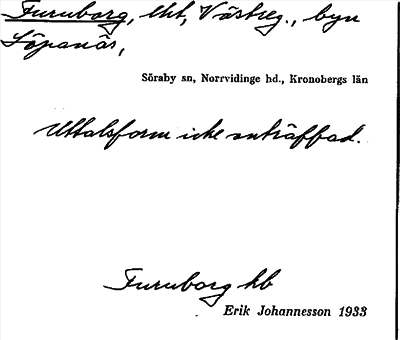 Furuborg, lht, Västreg., byn
Löpanäs,
Söraby sn, Norrvidinge hd., Kronobergs län
Uttalsform icke anträffad.
Furuborg hb
Erik Johannesson 1933